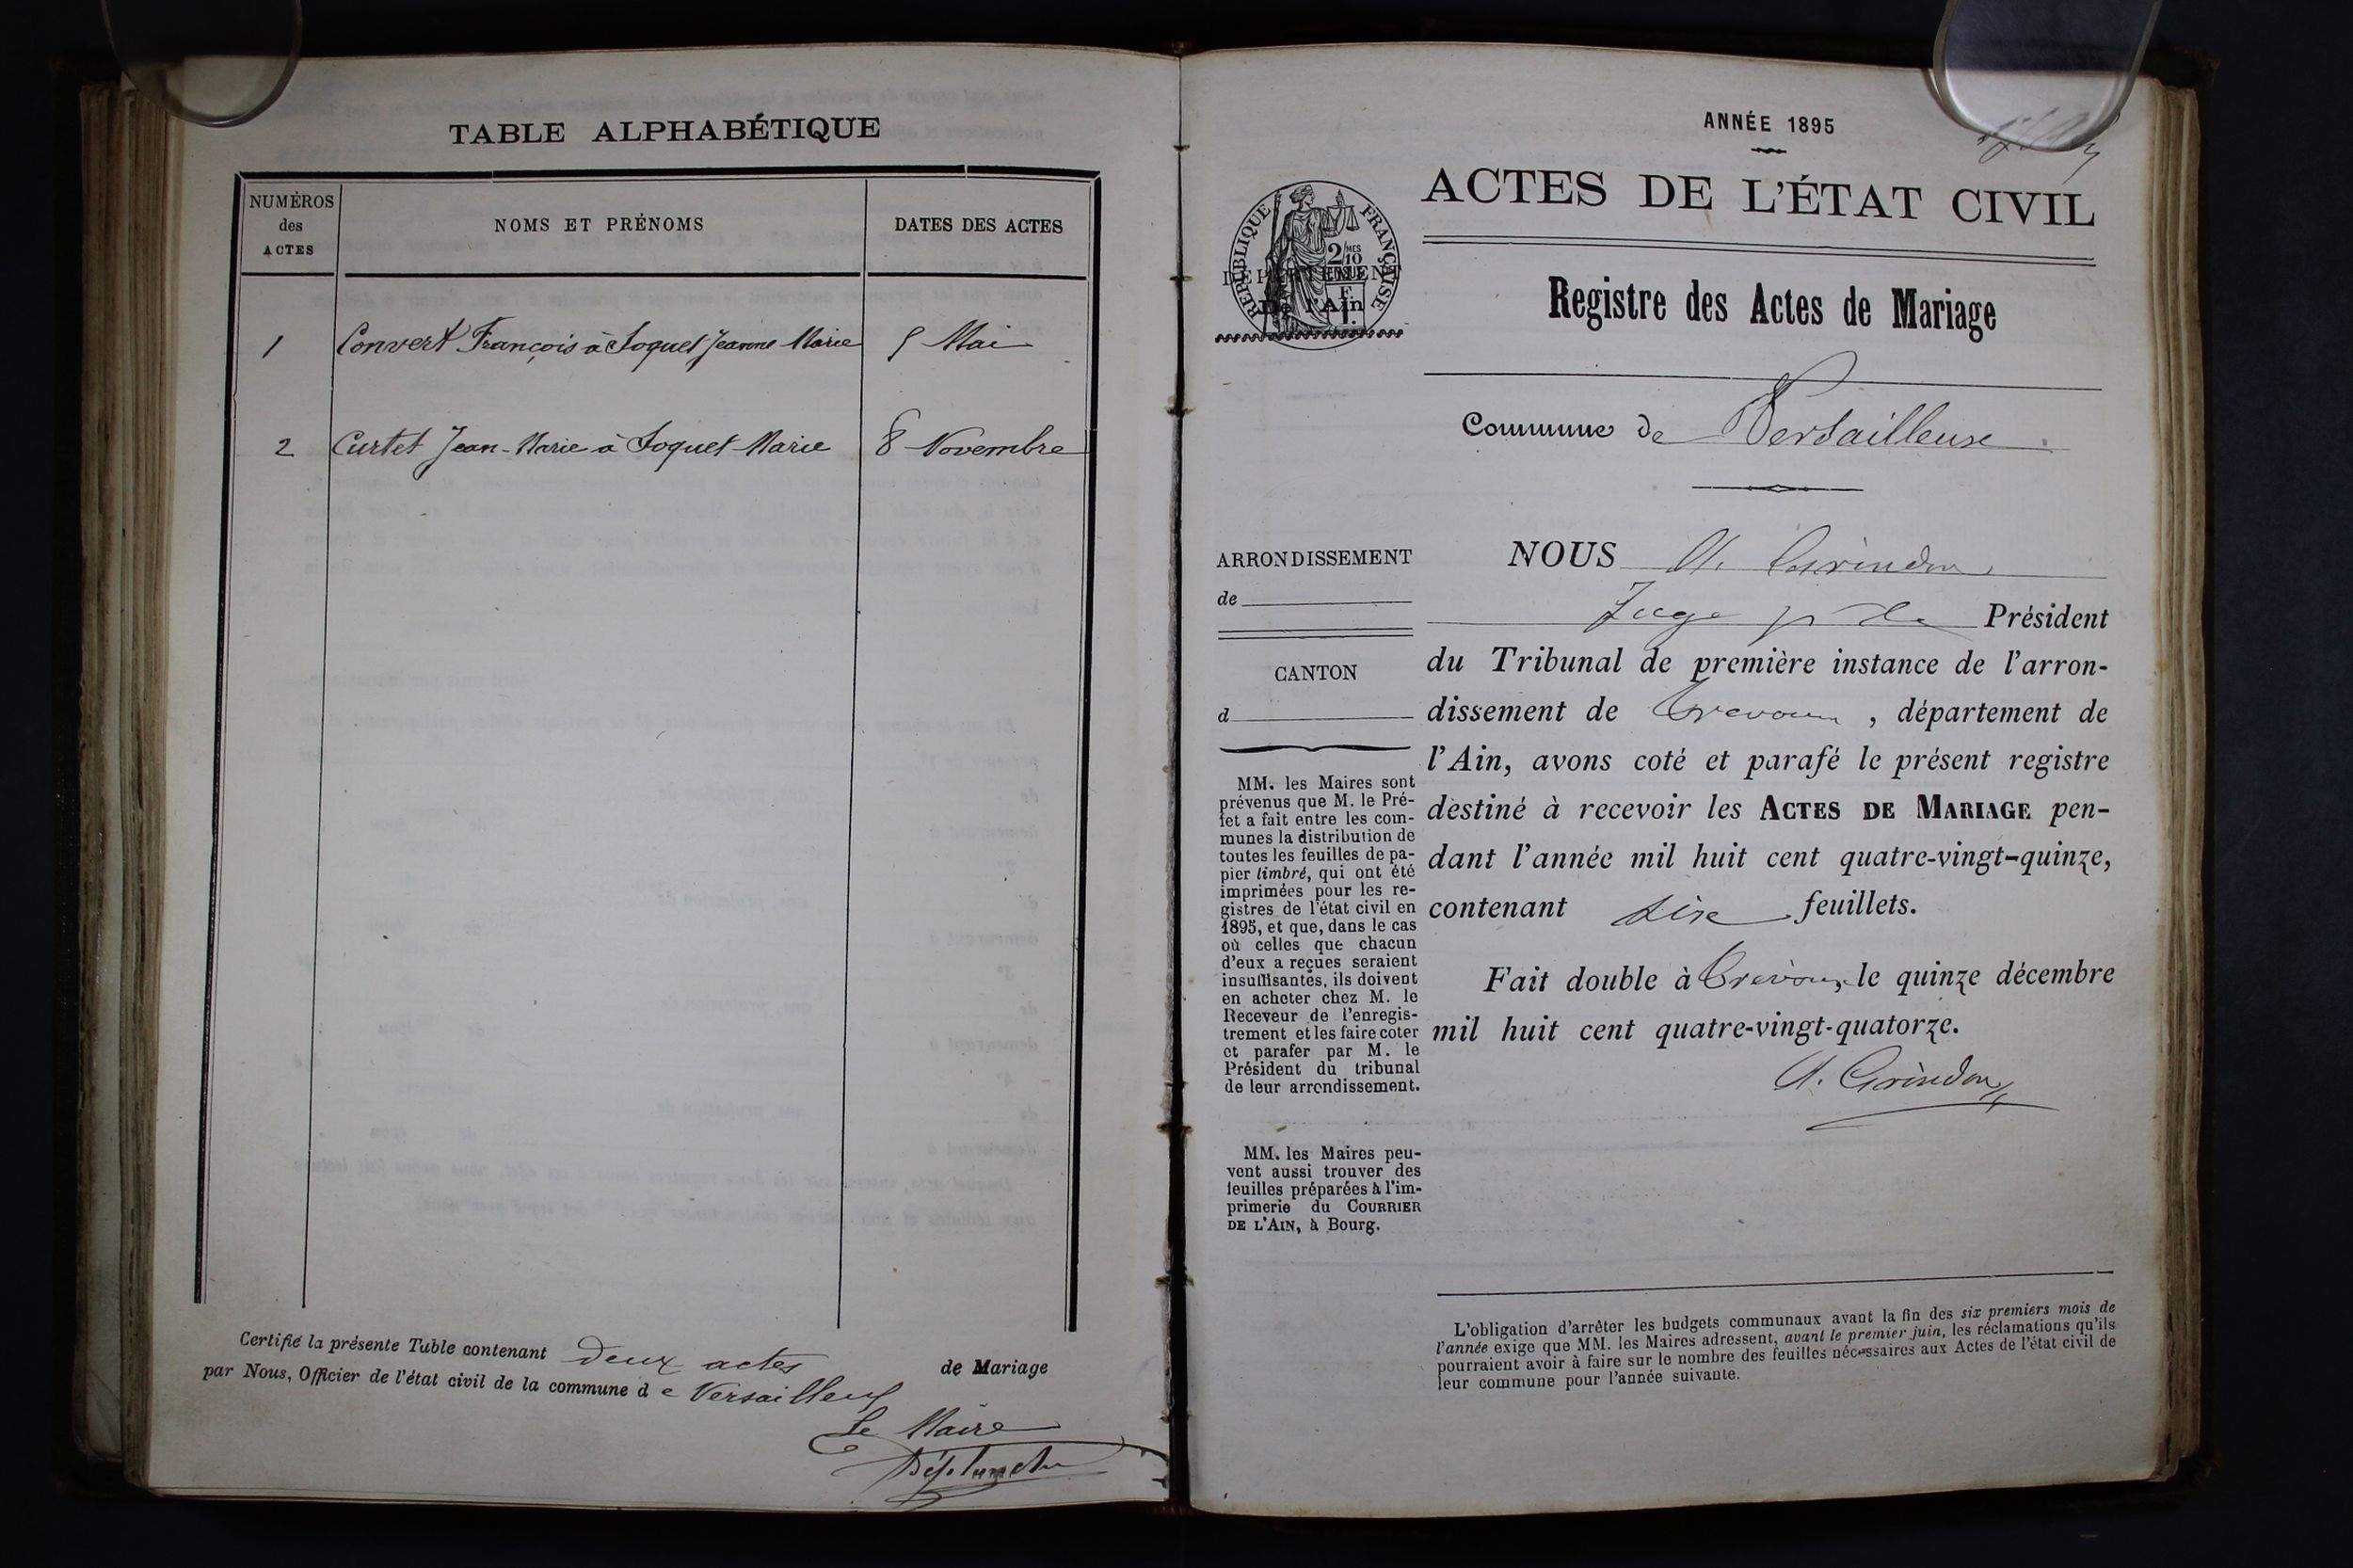 TABLE ALPHABÉTIQUE
NUMÉROS
des
ACTES
NOMS ET PRÉNOMS
DATES DES ACTES
1 Convert François à Soquet Jeanne Marie 5 Mai
2 Curtet Jean-Marie à Soquet Marie 8 Novembre
Certifié la présente Table contenant deux actes de Mariage
par Nous, Officier de l'état civil de la commune d e Versailleux
Le Maire
ANNÉE 1895
ACTES DE L'ÉTAT CIVIL
RÉPUBLIQUE FRANÇAISE
2/10 MES
DÉPARTEMENT
De l'Ain
Registre des Actes de Mariage
Commune de Versailleux
ARRONDISSEMENT
de
CANTON
d
MM. les Maires sont
prévenus que M. le Pré-
fet a fait entre les com-
munes la distribution de
toutes les feuilles de pa-
pier timbré, qui ont été
imprimées pour les re-
gistres de l'état civil en
1895, et que, dans le cas
où celles que chacun
d'eux a reçues seraient
insuffisantes, ils doivent
en acheter chez M. le
Receveur de l'enregis-
trement et les faire coter
et parafer par M. le
Président du tribunal
de leur arrondissement.
MM. les Maires peu-
vent aussi trouver des
feuilles préparées à l'im-
primerie du COURRIER
DE L'AIN, à Bourg.
NOUS A. Grindon
Juge p le Président
du Tribunal de première instance de l'arron-
dissement de Trevoux, département de
l'Ain, avons coté et parafé le présent registre
destiné à recevoir les ACTES DE MARIAGE pen-
dant l'année mil huit cent quatre-vingt-quinze,
contenant feuillets.
Fait double à Trévoux, le quinze décembre
mil huit cent quatre-vingt-quatorze.
A. Grindon
L'obligation d'arrêter les budgets communaux avant la fin des six premiers mois de
l'année exige que MM. les Maires adressent, avant le premier juin, les réclamations qu'ils
pourraient avoir à faire sur le nombre des feuilles nécessaires aux Actes de l'état civil de
leur commune pour l'année suivante.